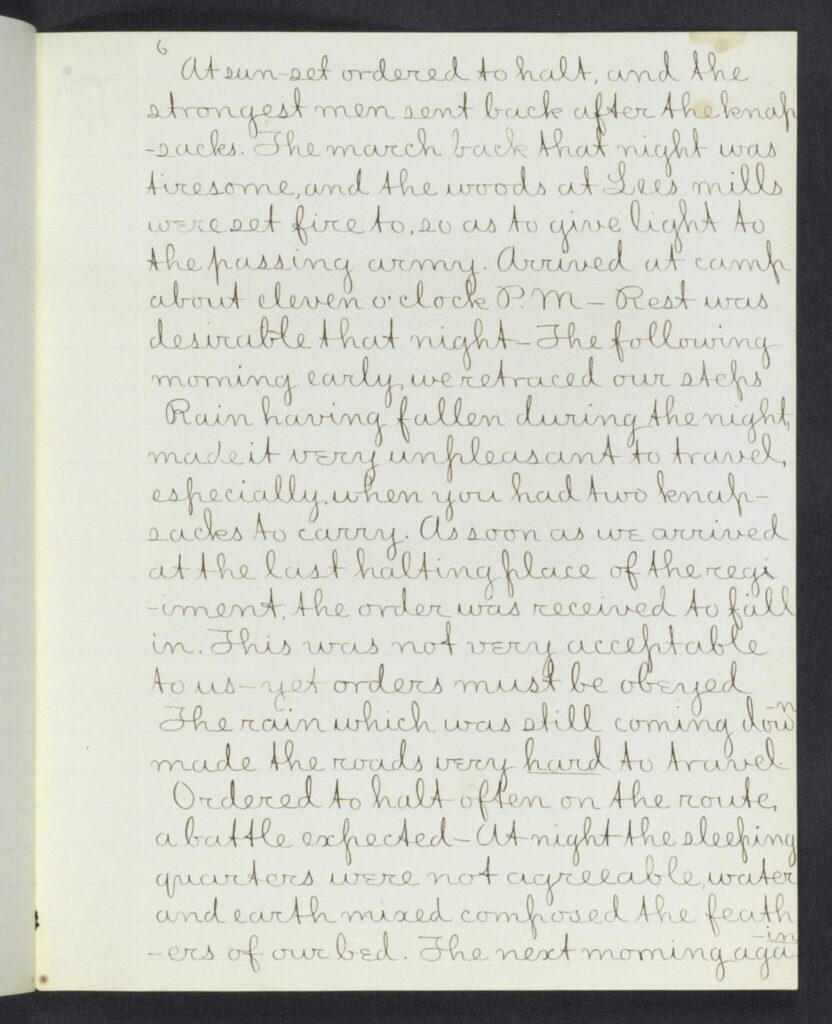 6
At sun-set ordered to halt, and the
strongest men sent back after the knap
-sacks. The march back that night was
tiresome, and the woods at Lees mills
were set fire to, so as to give light to
the passing army. Arrived at camp
about eleven o'clock P.M – Rest was
desirable that night – The following
morning early, we retraced our steps
Rain having fallen during the night,
made it very unpleasant to travel,
especially, when you had two knap-
sacks to carry. As soon as we arrived
at the last halting place of the regi
-iment, the order was received to fall
in. This was not very acceptable
to us – yet orders must be obeyed
The rain which was still coming dow-n
made the roads very hard to travel.
Ordered to halt often on the route,
a battle expected – At night the sleeping
quarters were not agreeable, water
and earth mixed composed the feath
-ers of our bed. The next morning aga-in